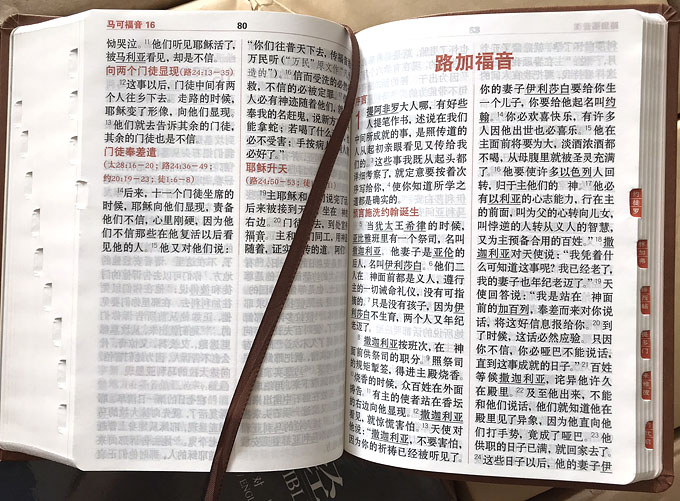 马可福音 16
80
恸哭泣。11他们听见耶稣活了,
被马利亚看见,却是不信。
向两个门徒显现(路24:13-35)
12这事以后,门徒中间有两
个人往乡下去。走路的时候,
耶稣变了形像,向他们显现。
13他们就去告诉其余的门徒,
其余的门徒也是不信。
门徒奉差遣
(太28:16-20;路24:36-49;
约20:19-23;徒1:6-8)
14后来,十一个门徒坐席的
时候,耶稣向他们显现,责备
他们不信,心里刚硬,因为他
们不信那些在他复活以后看
见他的人。15他又对他们说:
“你们往普天下去,传福音
万民听(“万民”原文作“
造的”)。16信而受洗的必然
救,不信的必被定罪。17
人必有神迹随着他们,
奉我的名赶鬼,说新方
能拿蛇;若喝了什么
必不受害;手按病人
必好了。”
耶稣升天
(路24:50-53;徒1:
19主耶稣和 们说完了
后来被接到天 坐在 神的
右边。20门徒 去,到处宣传
福音。主和 们同工,用神迹
随着,证实 传的道。阿们
82
路加福音
1提阿非罗大人哪,有好些
人提笔作书,述说在我们
中间所成就的事,是照传道的
人从起初亲眼看见又传给我
们的。3这些事我既从起头都
详细考察了,就定意要按着次
序写给你,4使你知道所学之
道都是确实的。
预言施洗约翰诞生
5当犹太王希律的时候,
亚比雅班里有一个祭司,名叫
撒迦利亚。他妻子是亚伦的
后人,名叫伊利莎白。6他们二
人在 神面前都是义人,遵行
主的一切诫命礼仪,没有可指
摘的。7只是没有孩子,因为伊
利莎白不生育,两个人又年纪
老迈了。
8撒迦利亚按班次,在 神
面前供祭司的职分,9照祭司
的规矩掣签,得进主殿烧香。
10烧香的时候,众百姓在外面
祷告。11有主的使者站在香坛
的右边向他显现。12撒迦利亚
看见,就惊慌害怕。13天使对
他说:“撒迦利亚,不要害怕,
因为你的祈祷已经被听见了。
你的妻子伊利莎白要给你生
一个儿子,你要给他起名叫约
翰。14你必欢喜快乐,有许多
人因他出世也必喜乐。15他在
主面前将要为大,淡酒浓酒都
不喝,从母腹里就被圣灵充满
了。16他要使许多以色列人回
转,归于主他们的 神。17他必
有以利亚的心志能力,行在主
的前面,叫为父的心转向儿女,
叫悖逆的人转从义人的智慧,
又为主预备合用的百姓。”18撒
迦利亚对天使说:“我凭着什
么可知道这事呢?我已经老了,
我的妻子也年纪老迈了。”19天
使回答说:“我是站在 神面
前的加百列,奉差而来对你说
话,将这好信息报给你。20到
了时候,这话必然应验。只因
你不信,你必哑巴不能说话,
直到这事成就的日子。”21百姓
等候撒迦利亚,诧异他许久
在殿里。22及至他出来,不能
和他们说话,他们就知道他在
殿里见了异象,因为他直向他
们打手势,竟成了哑巴。23他
供职的日子已满,就回家去了。
24这些日子以后,他的妻子伊